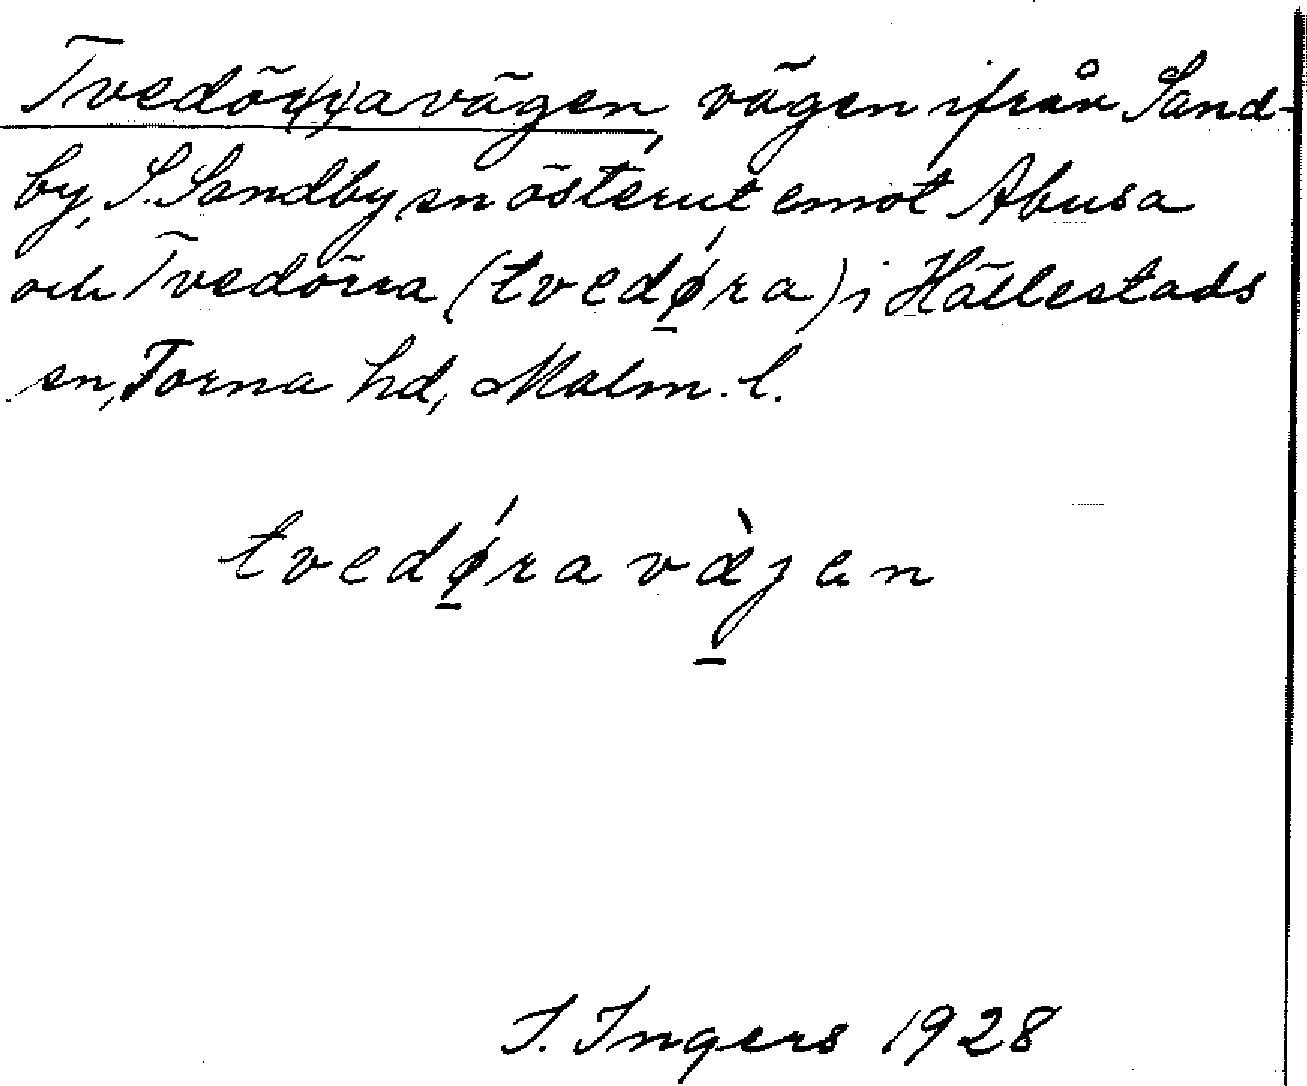 Tvedörravägen, vägen ifrån Sand-
by, S. Sandby sn österut emot Abusa
och Tvedörra (tvedǿ̱ra) i Hällestads
sn, Torna hd, Malm. l.
tvedǿ̱ravæ̱̀jen
I. Ingers 1928